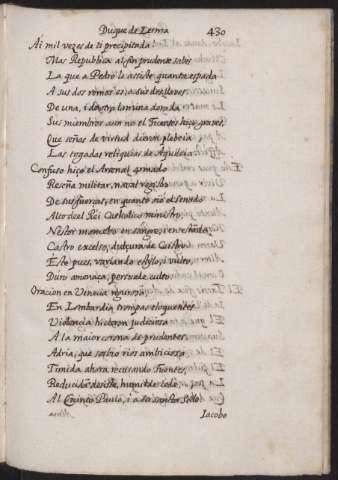 Duque de Lerma 430
Ai mil vezes de ti precipitada
Mas Republica al fin prudente sabes
La que a Pedro le assiste quanta espada
A sus dos remos es, a sus dos llaves
De una, i de otra lamina dorada
Sus miembros aun no el
Que señas de virtud dieron plebeia
Las togadas reliquias de Aquileia
Confuso hizo el Arsenal armado
Reseña militar, naval registro
De sus fuerças, en quanto oió el Senado
Alto de el Rei Catholico ministro,
Nestor mancebo en sangre, i en
Castro excelso, dulçura de Caistro
Este pues, variando estilo, i vulto,
Duro amenaça, persuade culto.
Oracion en Venecia rigurosa
En Lombardia trompas eloquentes
Violencia hizieron judiciosa
A la maior corona de prudentes.
Adria, que sorbio rios ambiciosa
Timida ahora recusando fuentes,
Reducida desiste, humilde cede,
Al Quinto Paulo, i a su
Iacobo